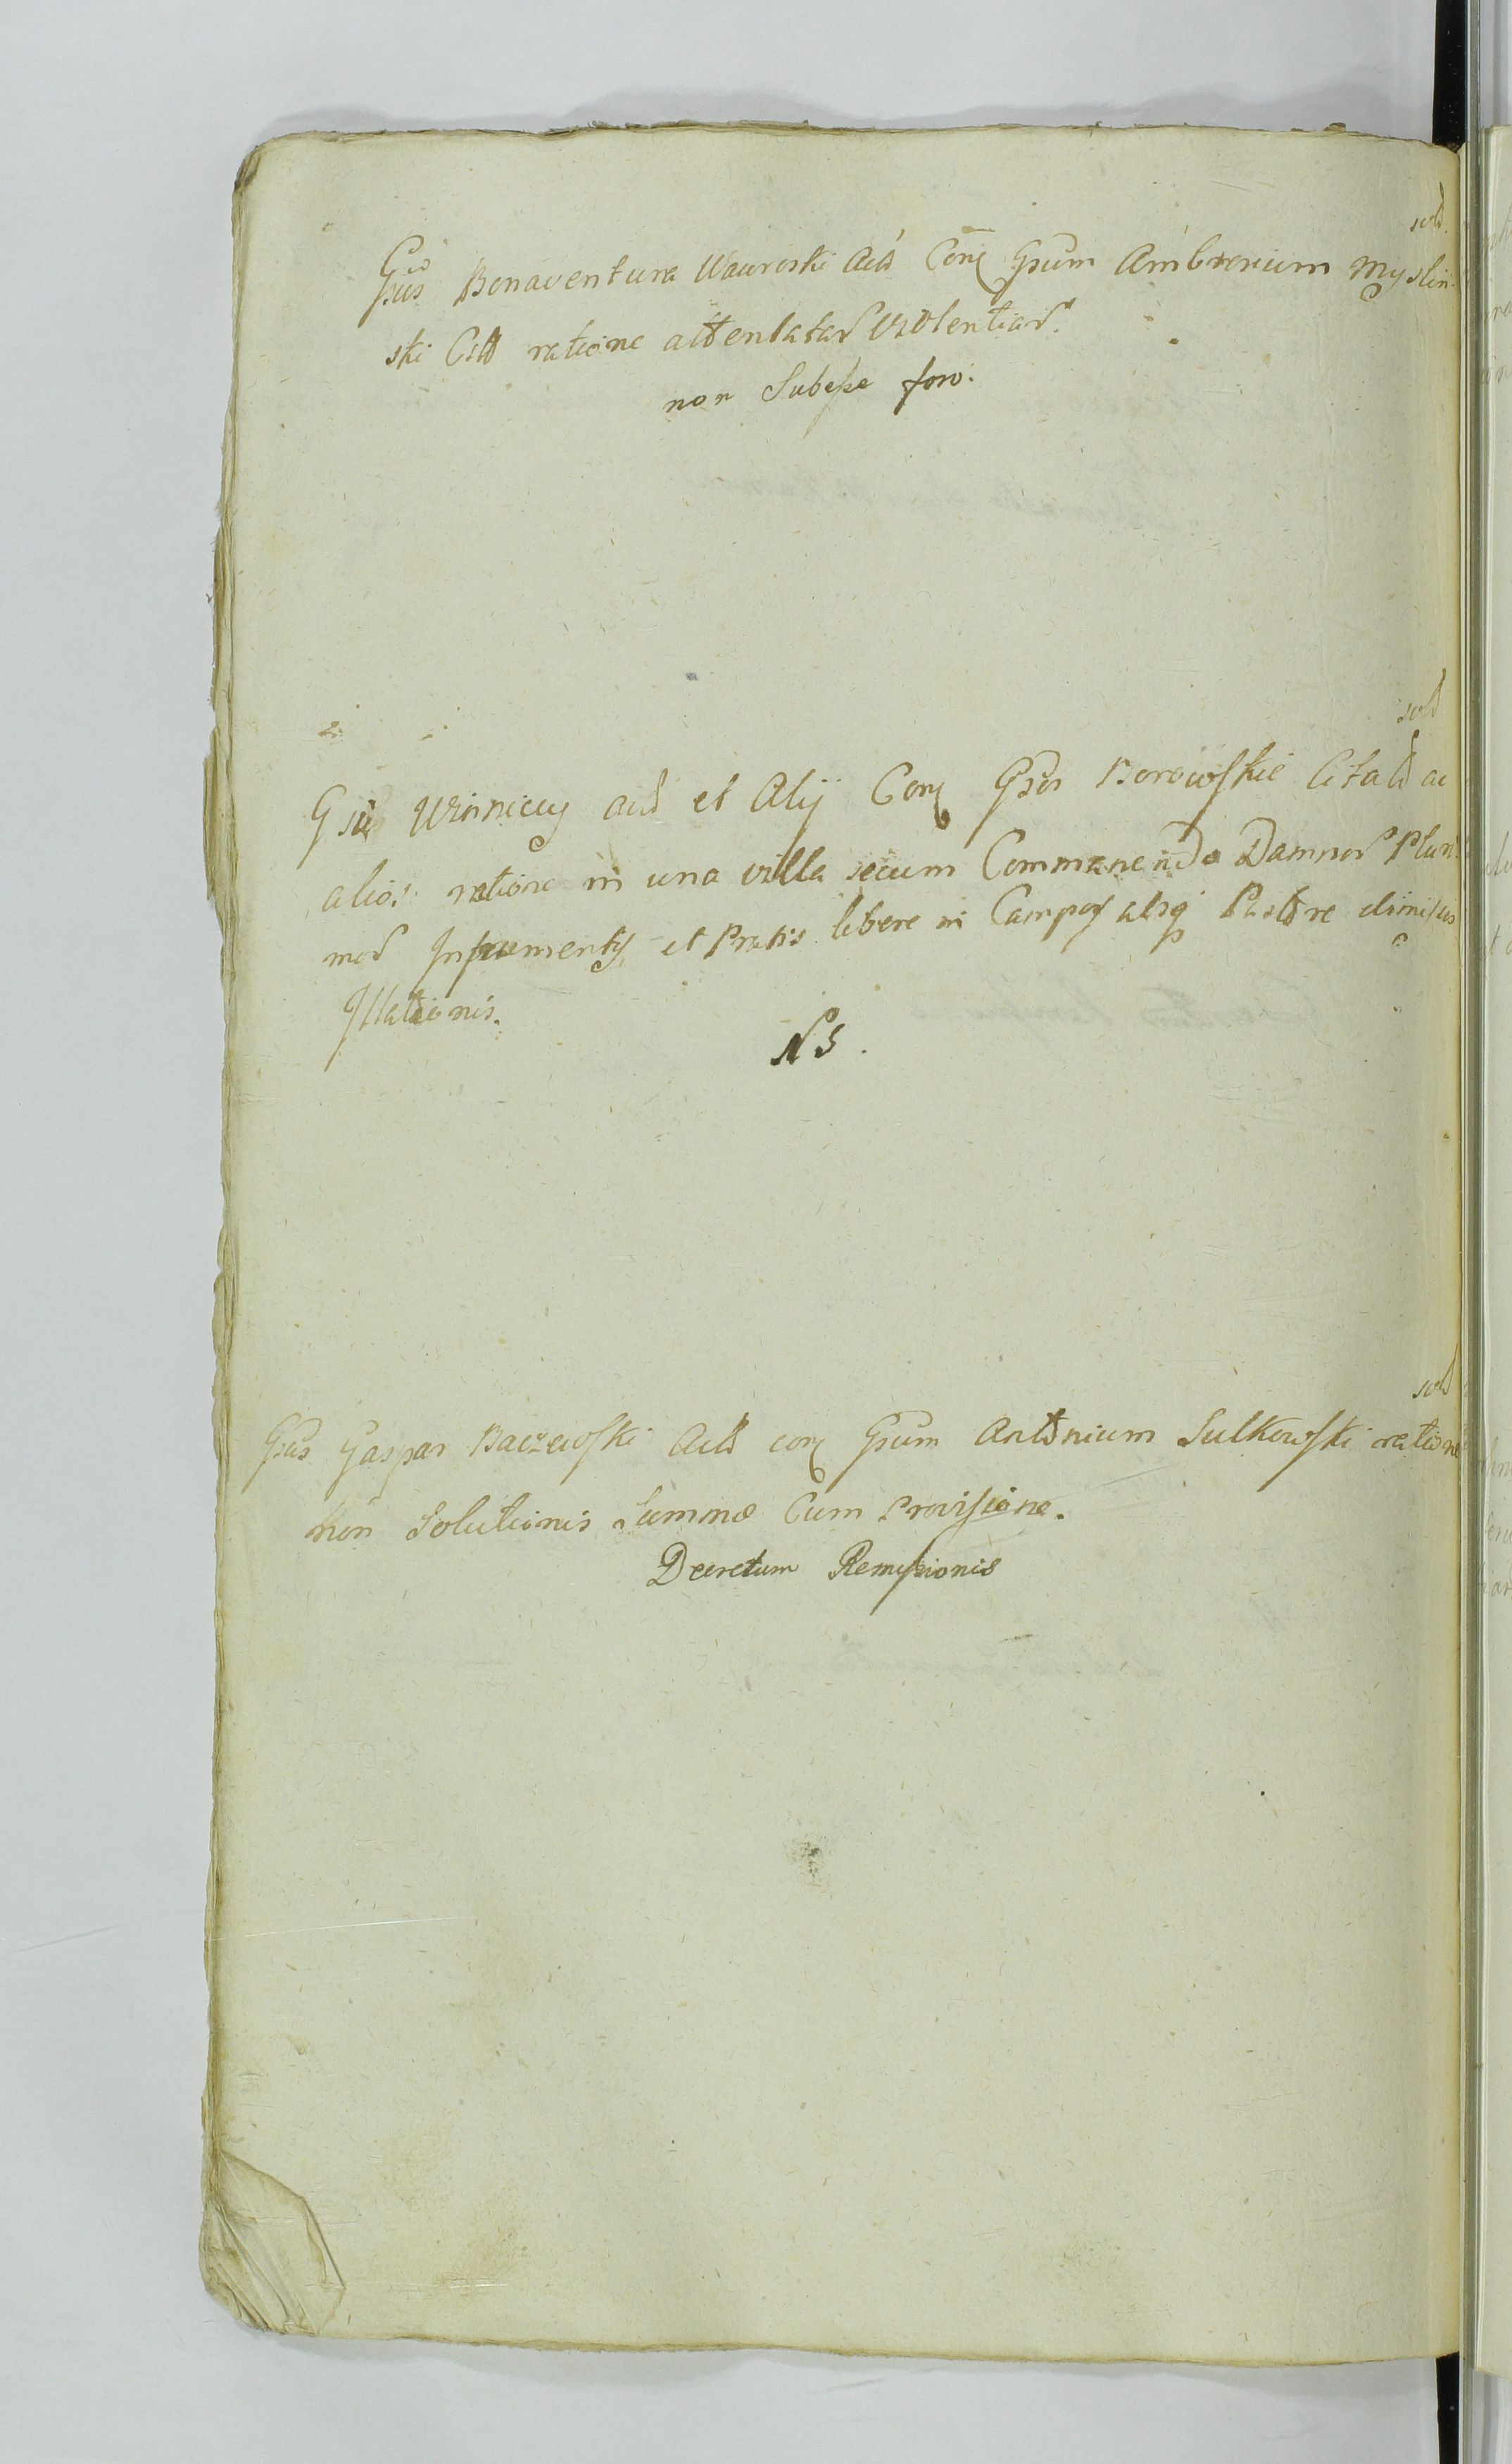 sold.
Gsus Bonaventura Wawroski Act Conq Gsum Ambrosium Myslin-
ski Citt ratione attentatar Violentiar.
non Subesse foro.
sold
Gsus Winnicky act et Alij Conq Gsos Borowskie Citatt ac
alios: ratione in una villa secum Commanendo Damnor Pluri
mor In frumentis et Pratis libere in Campos absq Pastore dimissis
Illationis.
NS.
sold
Gsus Gaspar Baczewski Actt conq Gsum Antonium Sulkowski ratione
non Solutionis Summae Cum Provisione.
Decretum Remissionis